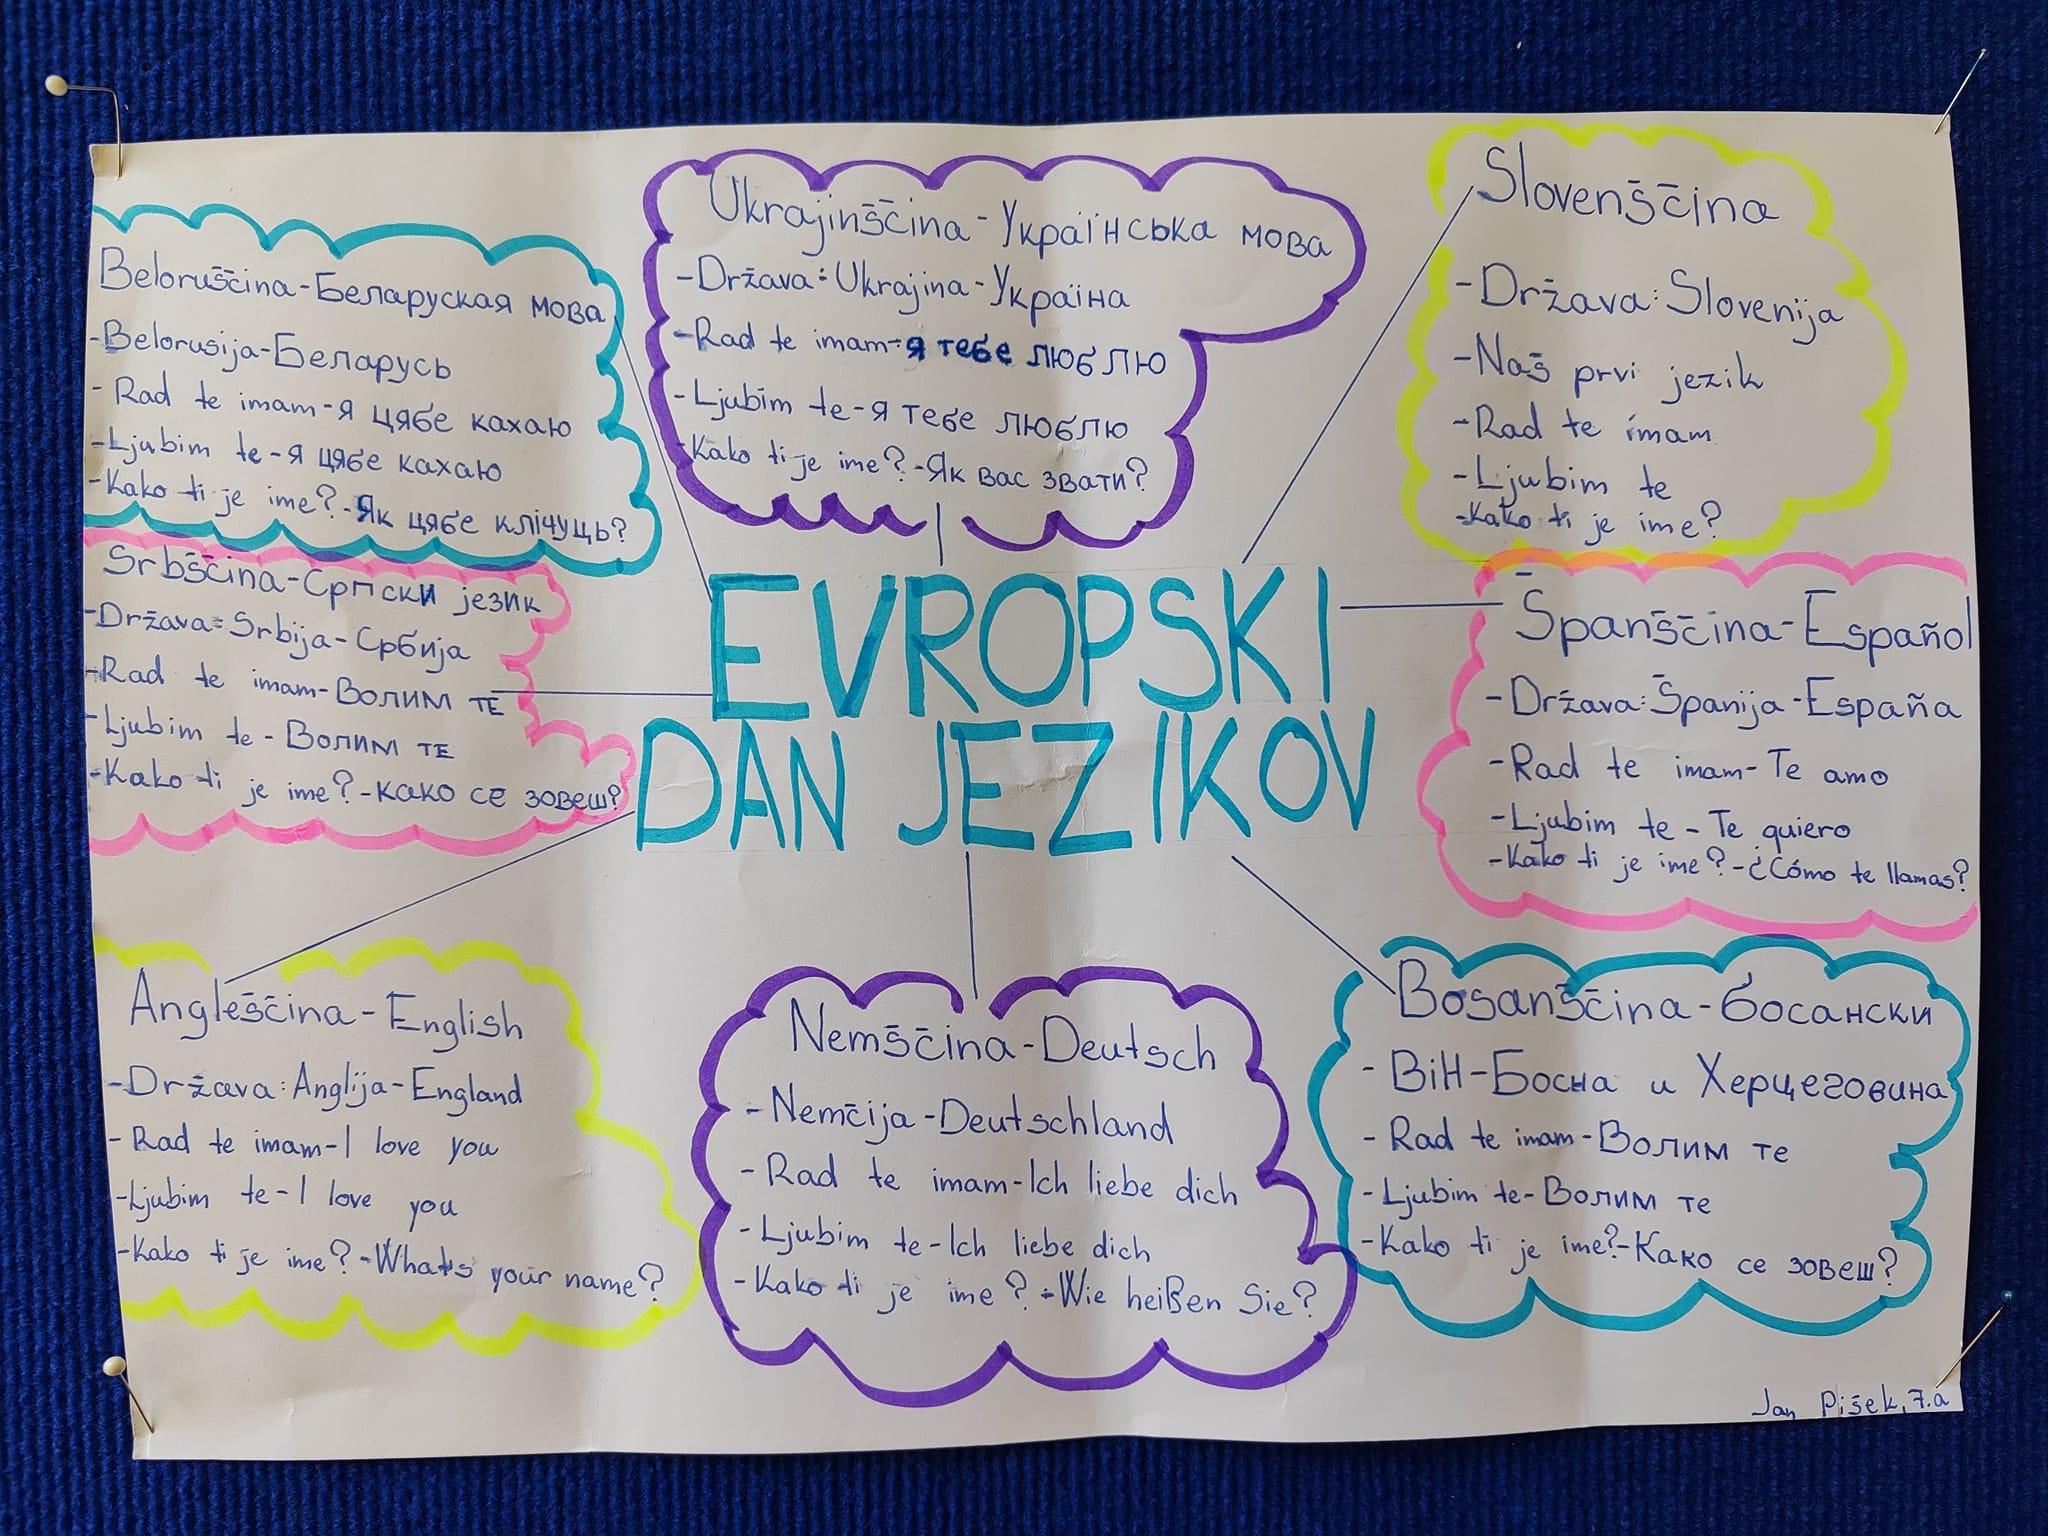 Beloruščina-Беларуская мова
-Belorusija-Беларусь
-Rad te imam-я цябе кахаю
-Ljubim te-я цябе кахаю
-Kako ti je ime?-Як цябе клічуць?
Ukrajinščina-Українська мова
-Država:Ukrajina-Україна
-Rad te imam-я тебе люблю
-Ljubim te-я тебе люблю
-Kako ti je ime?-Як вас звати?
Slovenščina
-Država:Slovenija
-Naš prvi jezik
-Rad te imam
-Ljubim te
-Kako ti je ime?
Srbščina-Српски језик
-Država:Srbija-Србија
-Rad te imam-Волим те
-Ljubim te-Волим те
-Kako ti je ime?-како се зовеш?
EVROPSKI
DAN JEZIKOV
Španščina-Español
-Država:Španija-España
-Rad te imam-Te amo
-Ljubim te-Te quiero
-Kako ti je ime?-¿Cómo te llamas?
Angleščina-English
-Država:Anglija-England
-Rad te imam-I love you
-Ljubim te-I love you
-Kako ti je ime?-Whats your name?
Nemščina-Deutsch
-Nemčija-Deutschland
-Rad te imam-Ich liebe dich
-Ljubim te-Ich liebe dich
-Kako ti je ime?-Wie heißen Sie?
Bosanščina-босански
-BiH-Босна и Херцеговина
-Rad te imam-Волим те
-Ljubim te-Волим те
-Kako ti je ime?-Како се зовеш?
Jan Pišek, 7.a